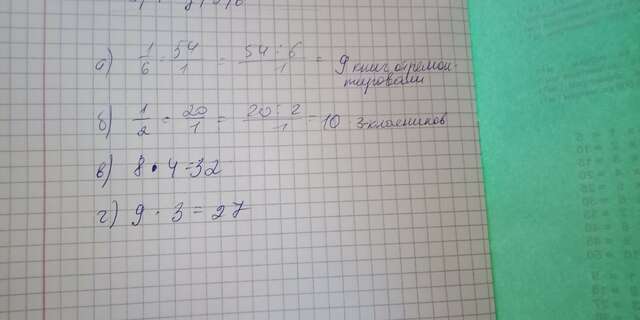 а) 1/6 · 54/1 = 54:6/1 = 9 книг отремон-
тировали
б) 1/2 · 20/1 = 20:2/1 = 10 3-класников
в) 8 · 4 = 32
г) 9 · 3 = 27